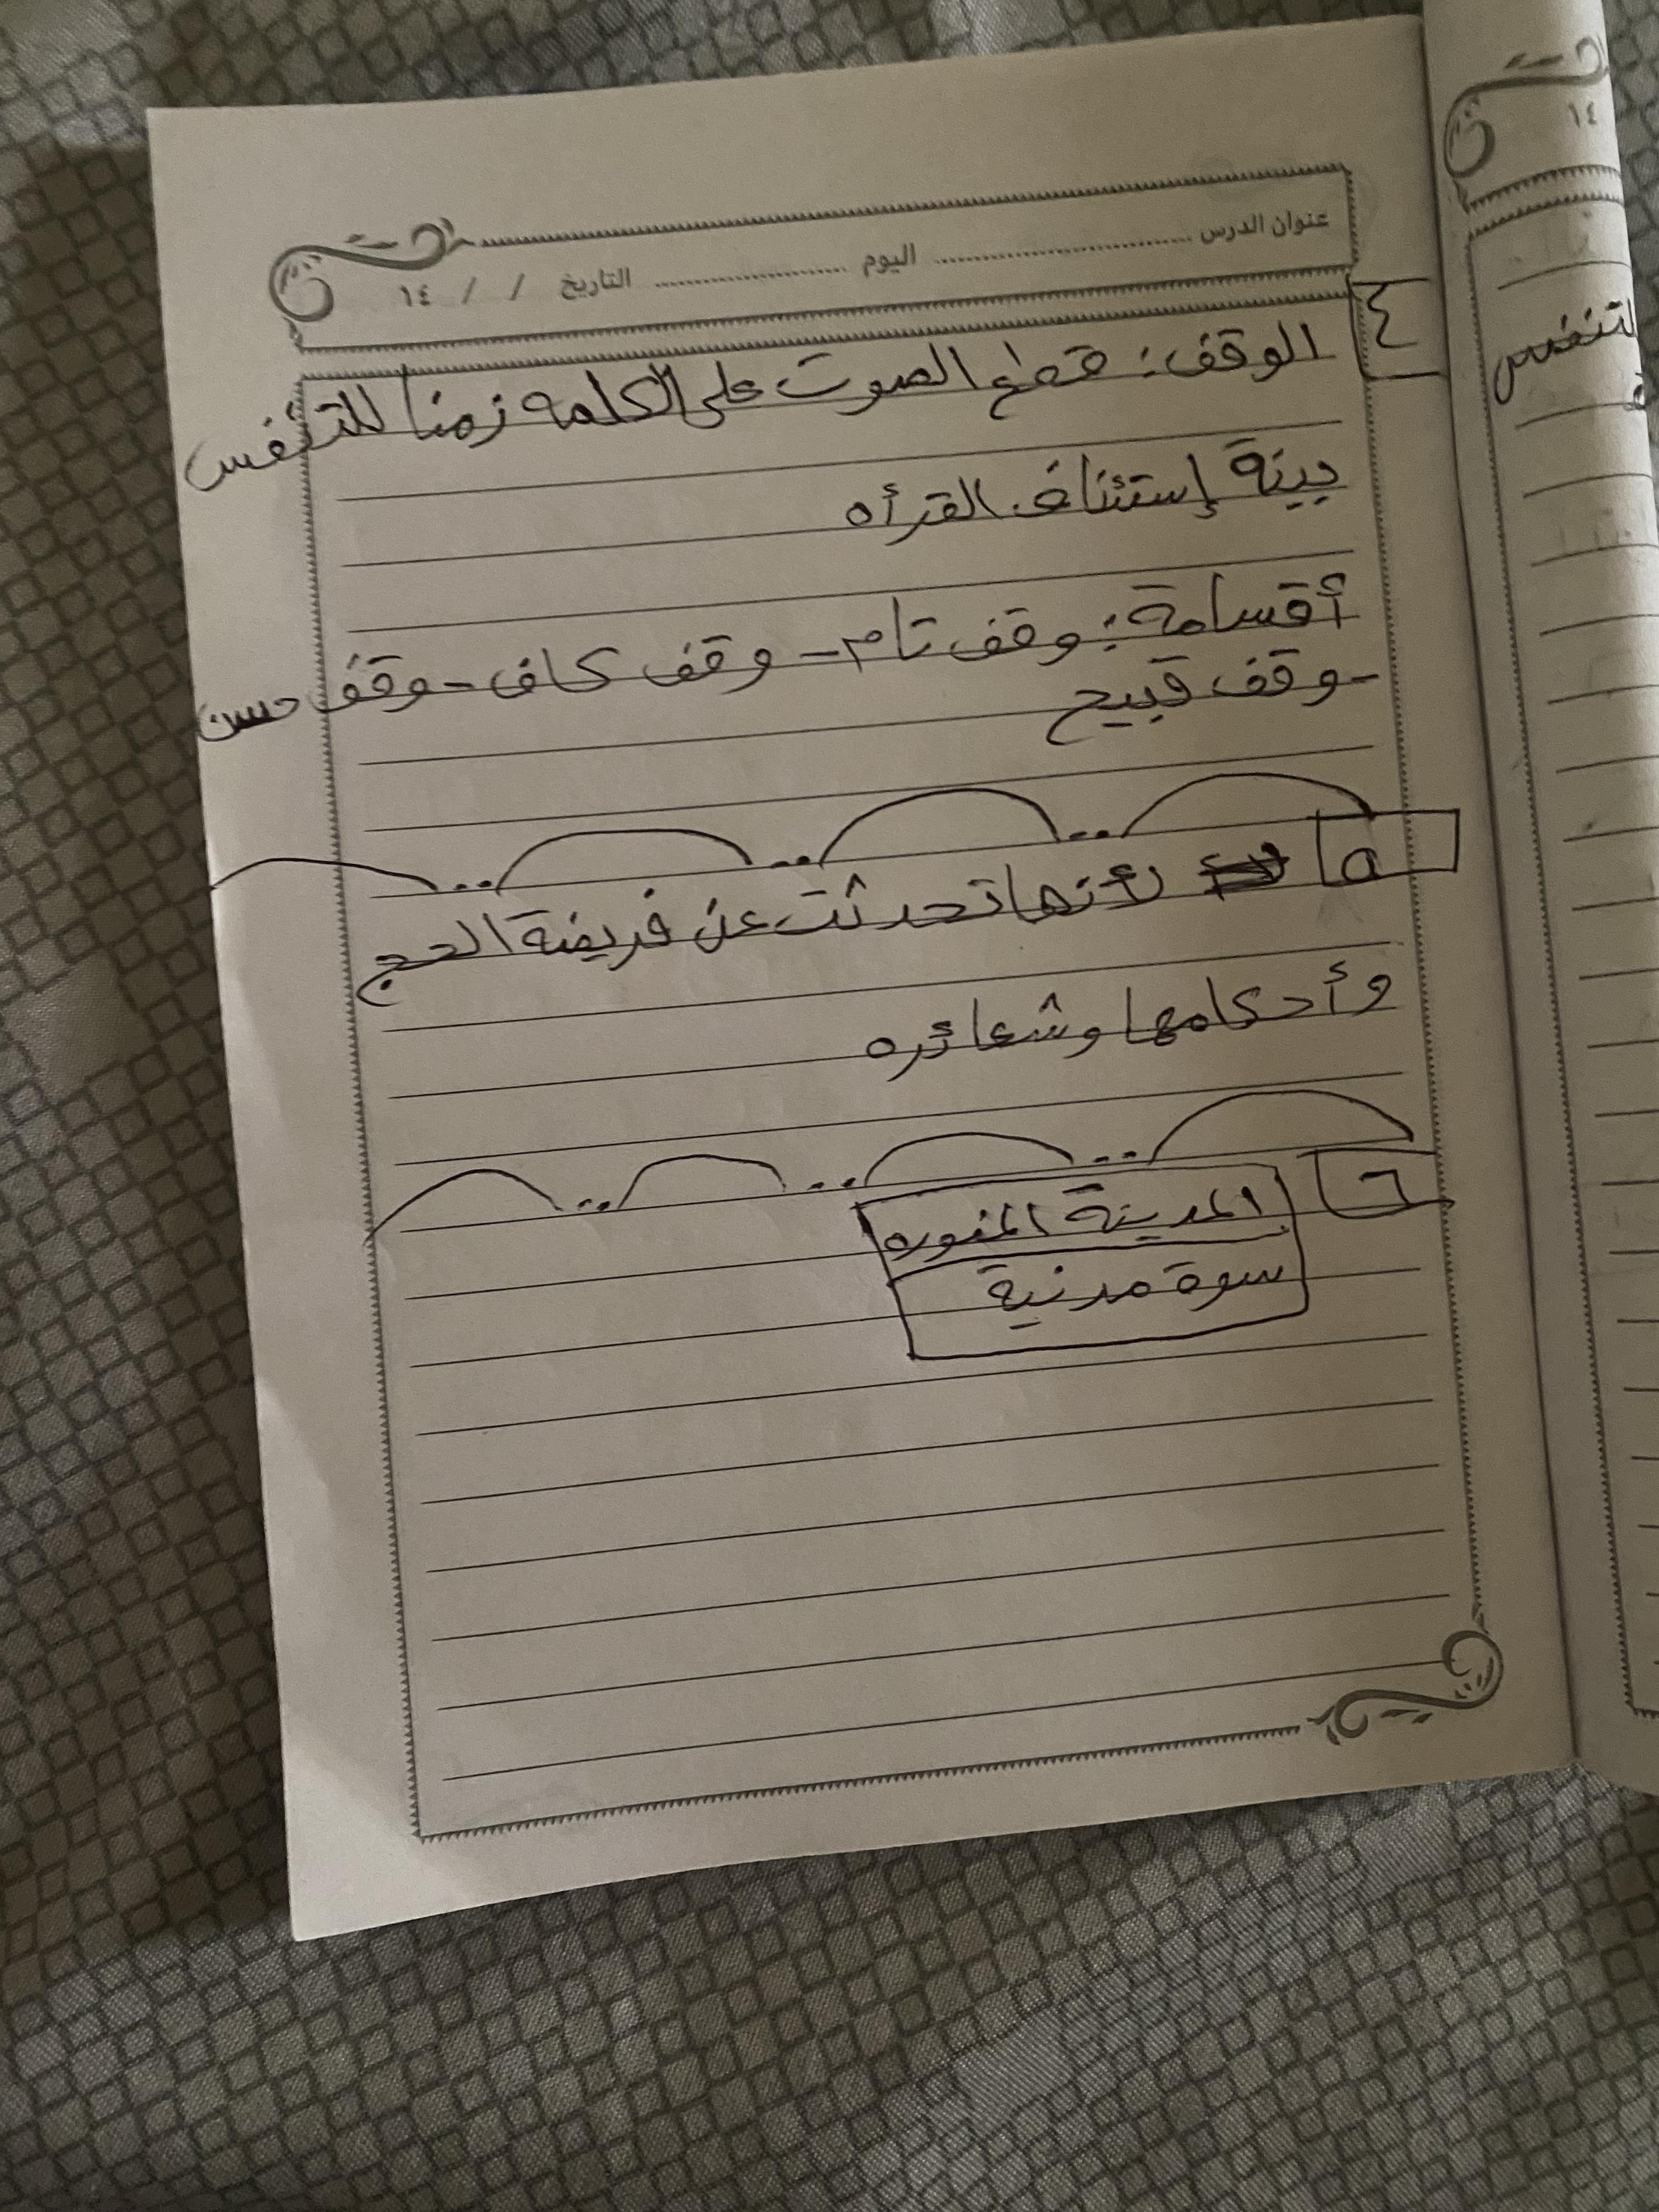 عنوان الدرس ........ اليوم ........ التاريخ / / ١٤
٤
الوقف: قطع الصوت على الكلمه زمنا للتنفس
بينة إستئناف القرأه
أقسامة: وقف تام - وقف كاف - وقف حسن
- وقف قبيح
٥
لأنها تحدثت عن فريضة الحج
وأحكامها وشعائره
٦
المدينة المنوره
سوة مدنية
١٤
لتنفس